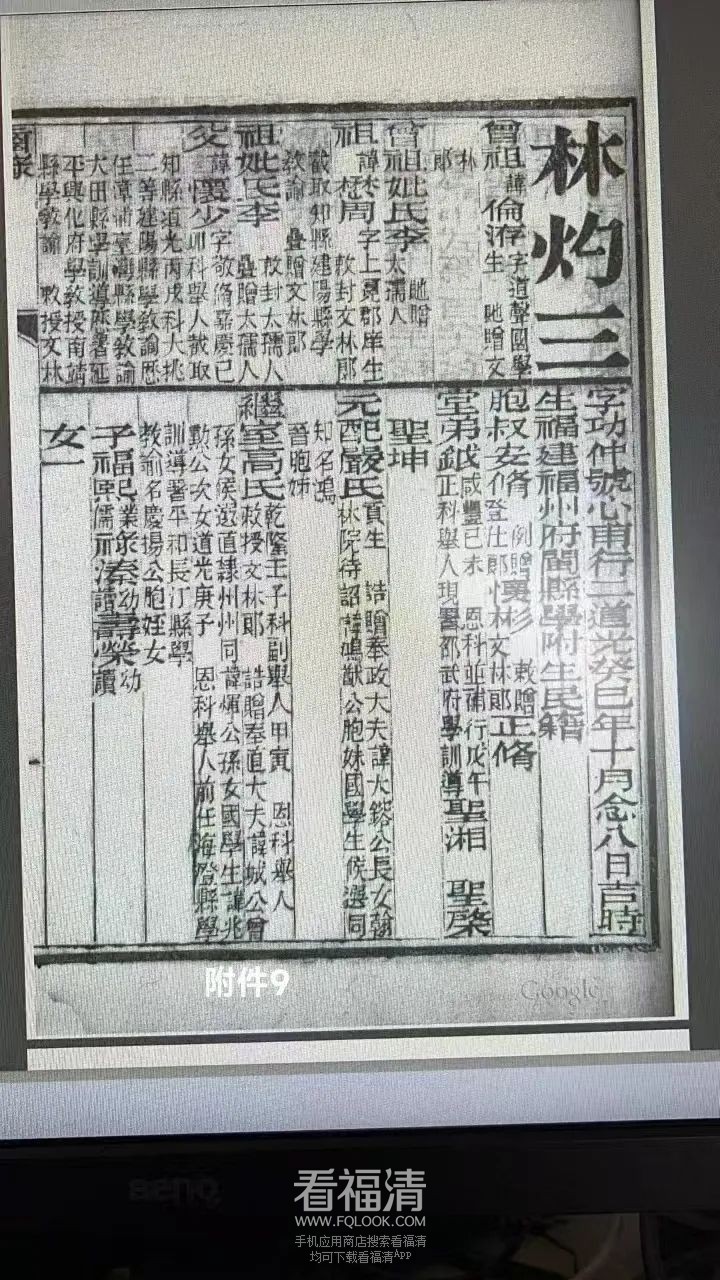 林灼三
字功仲號心甫行二道光癸巳年十月念八日吉時
生福建福州府閩縣學附生民籍
曾祖諱倫
字道聲國學
生 馳贈文
林
郎
胞叔安脩
登仕郎
例贈
懷杉
文林郎
敕贈
正脩
曾祖妣氏李
馳贈
太孺人
堂弟鉞
咸豐己未 恩科並補行戊午
正科舉人現署邵武府學訓導
聖湘 聖棨
聖坤
祖諱懋周
字上冕郡庠生
敕封文林郎
截取知縣建陽縣學
教諭 疊贈文林郎
元配嚴氏
貢生 誥贈奉政大夫諱大鎔公長女翰
林院待詔諱鳴猷公胞妹國學生候選同
知名鴻
晉胞姊
祖妣氏李
敕封太孺人
疊贈太孺人
繼室高氏
乾隆壬子科副舉人甲寅 恩科舉人
敕授文林郎 誥贈奉直大夫諱城公曾
孫女候選直隸州州同諱煇公孫女國學生諱兆
勲公次女道光庚子 恩科舉人前任海澄縣學
訓導署平和長汀縣學
教諭名慶揚公胞姪女
父諱懷少
字敬脩嘉慶己
卯科舉人截取
知縣道光丙戌科大挑
二等建陽縣學教諭歷
任漳浦臺灣縣學教諭
大田縣學訓導陞署延
平興化府學教授南靖
縣學教諭 敕授文林
子福熙
業儒
祿秦
幼
讀
壽榮
幼
讀
女一
附件9
Google
BenQ
看福清
WWW.FQLOOK.COM
手机应用商店搜索看福清
均可下载看福清App